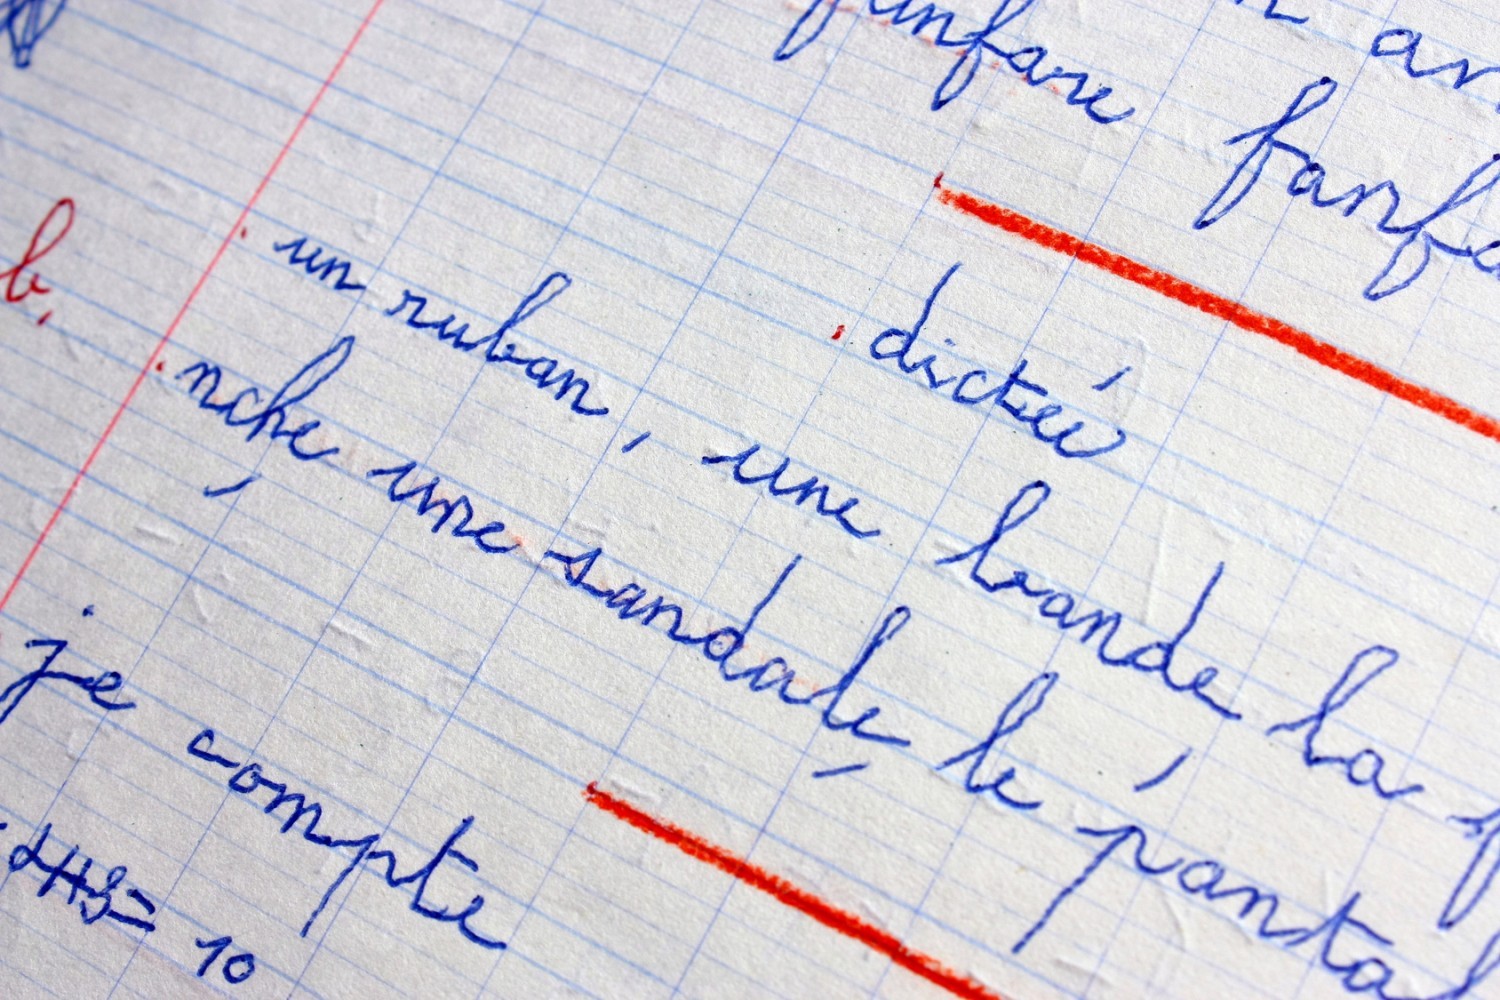 fanfare fanfa
b.
dictée
un ruban, une bande, la
nche, une sandale, le panta
je compte
= 10